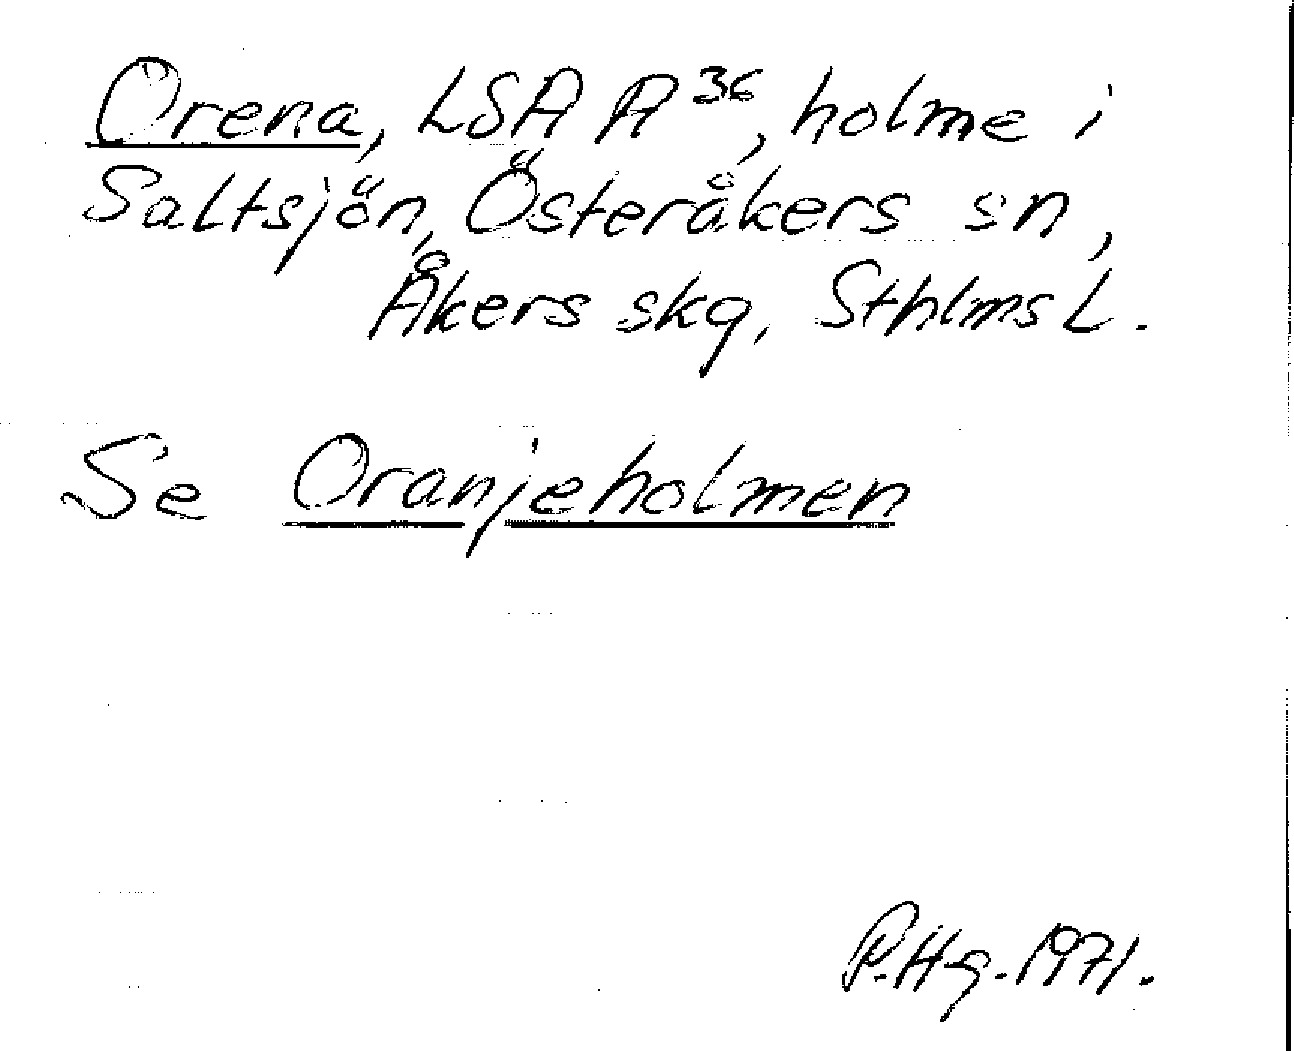 Orena, LSA A 36, holme i
Saltsjön, Österåkers sn,
Åkers skg, Sthlms L.
Se Oranjeholmen
P.Hg. 1971.